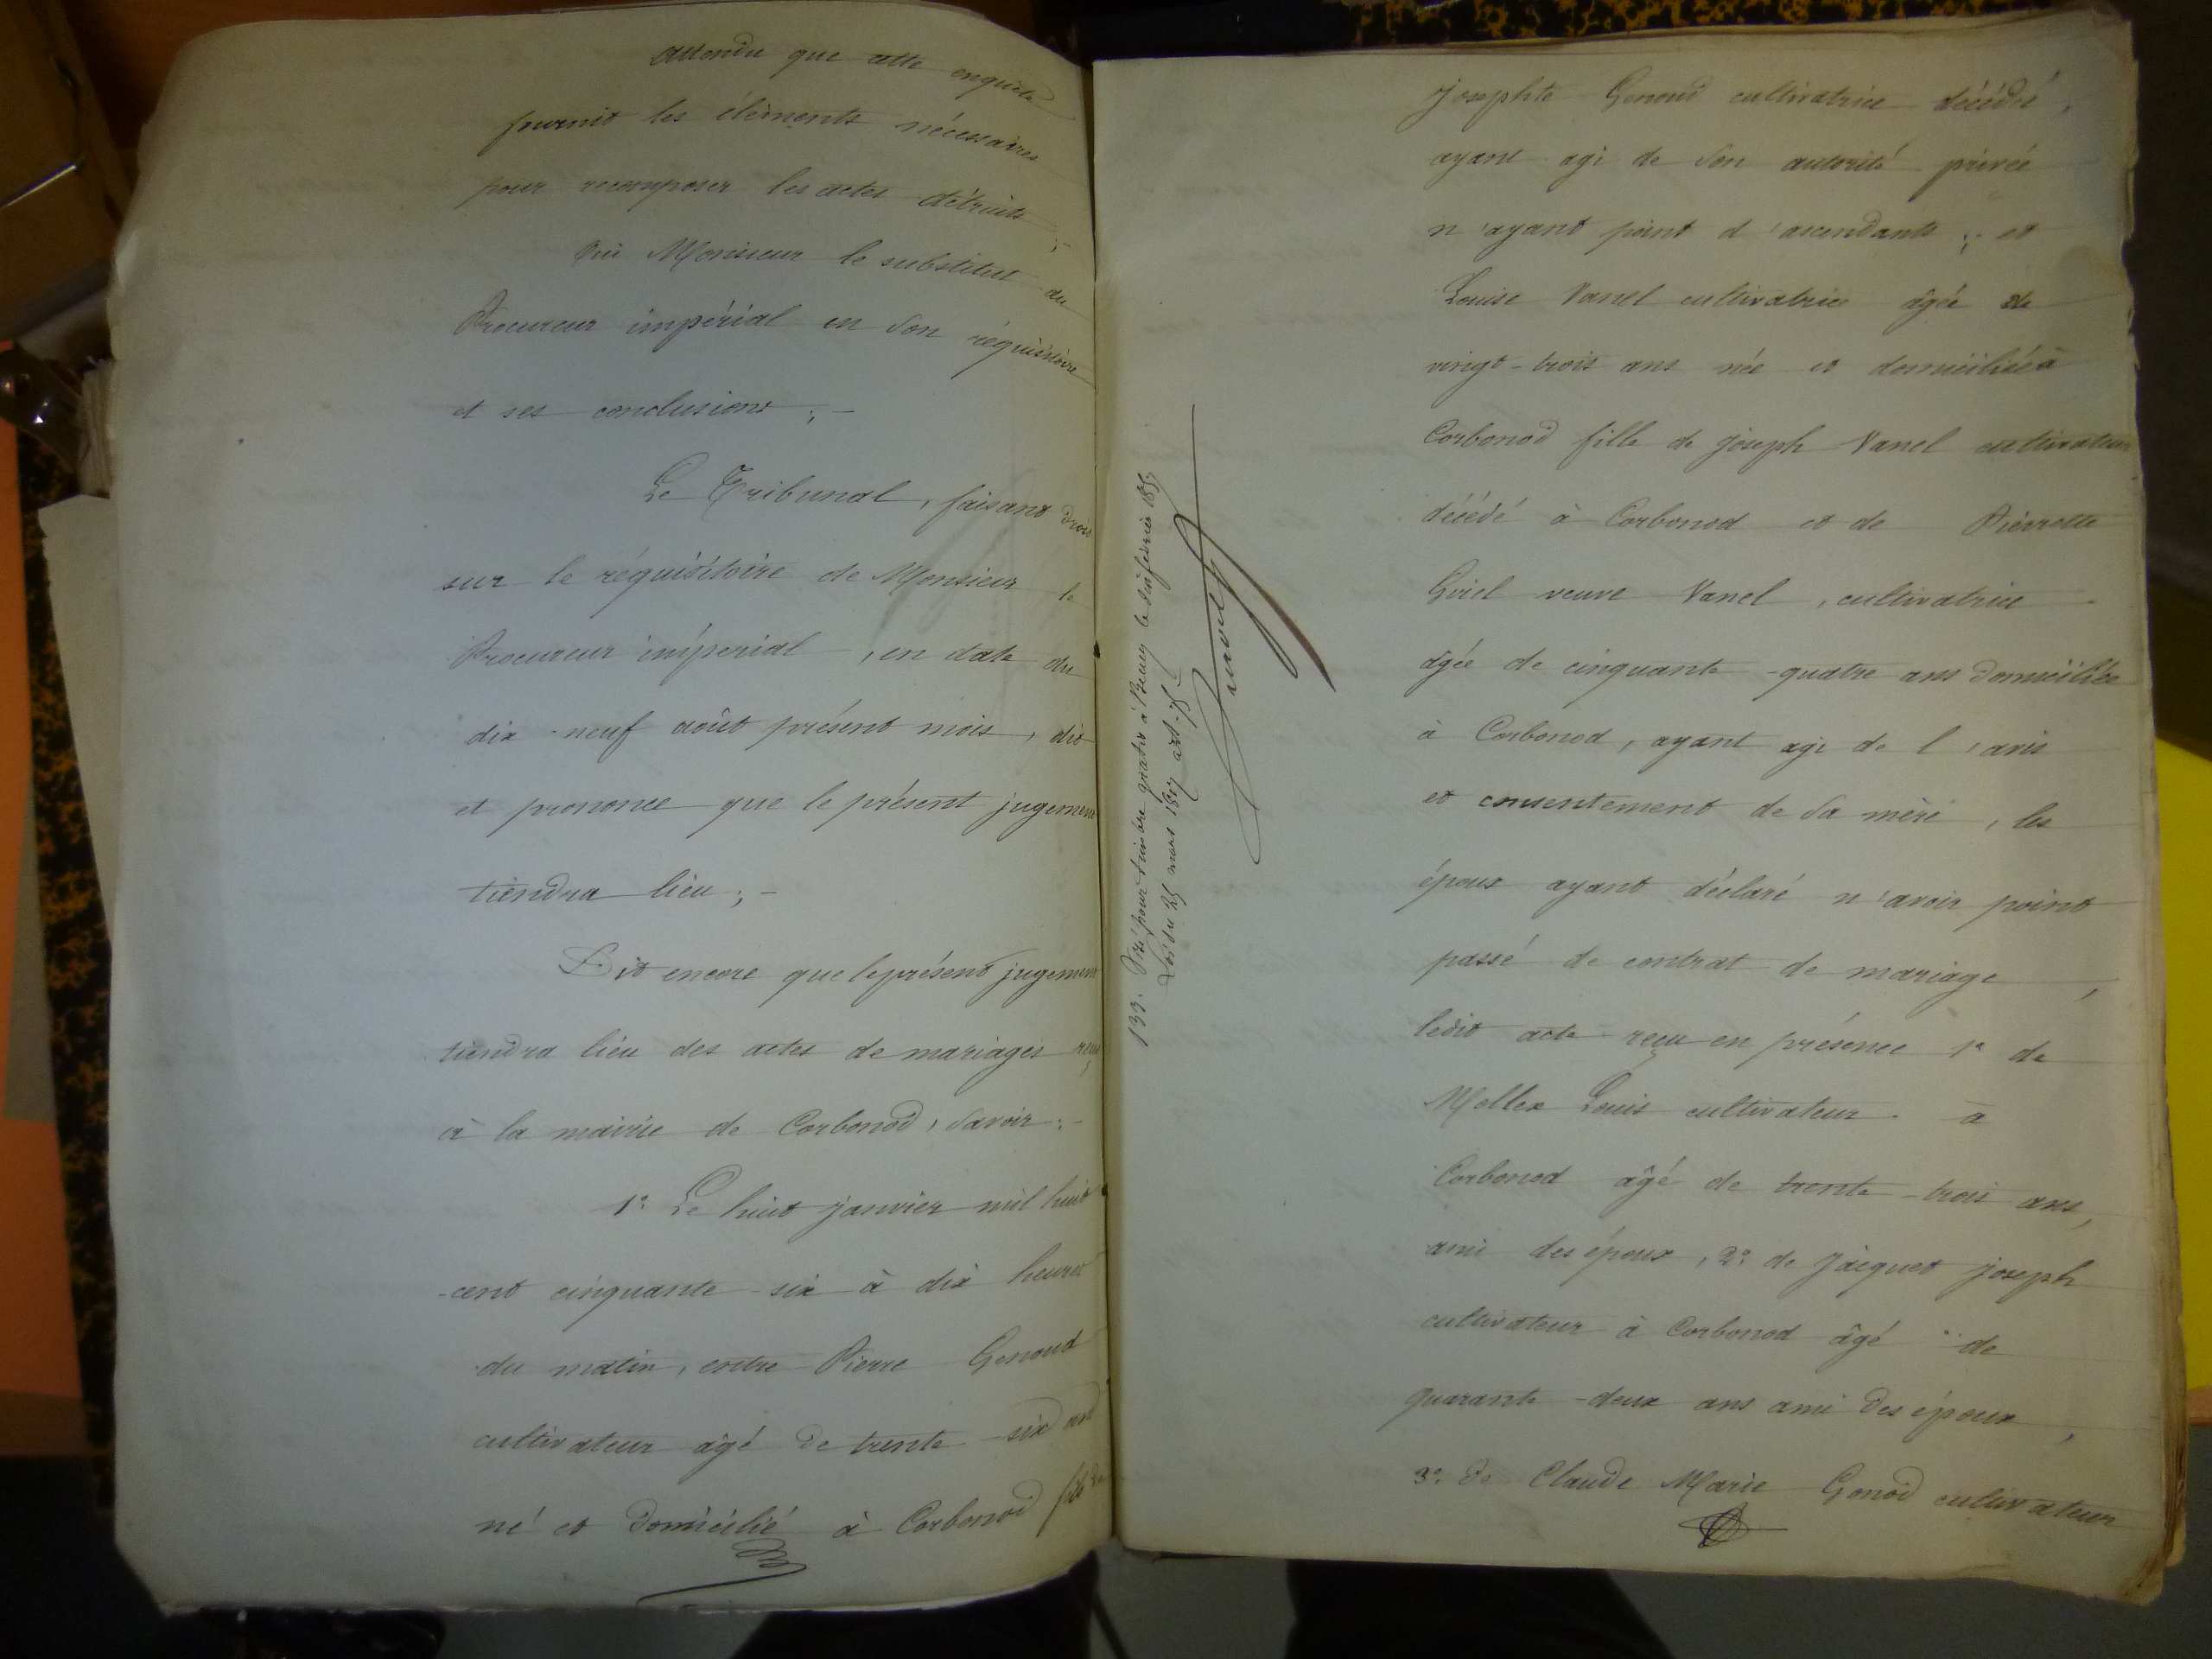 attendu que cette enquête
fournit les éléments nécessaires
pour recomposer les actes détruits ;-
Oui Monsieur le substitut du
Procureur impérial en son réquisitoire
et ses conclusions ;-
Le Tribunal, faisant droit
sur le réquisitoire de Monsieur le
Procureur impérial, en date du
dix-neuf août présent mois, dit
et prononce que le présent jugement
tiendra lieu ;-
Dit encore que le présent jugement
tiendra lieu des actes de mariages reçus
à la mairie de Corbonod, savoir :-
1° Le huit janvier mil huit
-cent cinquante-six à dix heures
du matin, entre Pierre Genoud
cultivateur âgé de trente-six ans
né et domicilié à Corbonod fils de
133. Visé pour timbre gratis à Belley le six février 1857
Loi du 25 mars 1817 art. 75
josephte Genoud cultivatrice décédée,
ayant agi de son autorité privée
n'ayant point d'ascendants ; et
Louise Vanel cultivatrice âgée de
vingt-trois ans née et domiciliée à
Corbonod fille de joseph Vanel cultivateur
décédé à Corbonod et de Pierrette
Griel veuve Vanel, cultivatrice
âgée de cinquante-quatre ans domiciliée
à Corbonod, ayant agi de l'avis
et consentement de sa mère, les
époux ayant déclaré n'avoir point
passé de contrat de mariage,
ledit acte reçu en présence 1° de
Mollex Louis cultivateur à
Corbonod âgé de trente-trois ans,
ami des époux, 2° de Jacquet joseph
cultivateur à Corbonod âgé de
quarante-deux ans ami des époux,
3° de Claude Marie Gonod cultivateur